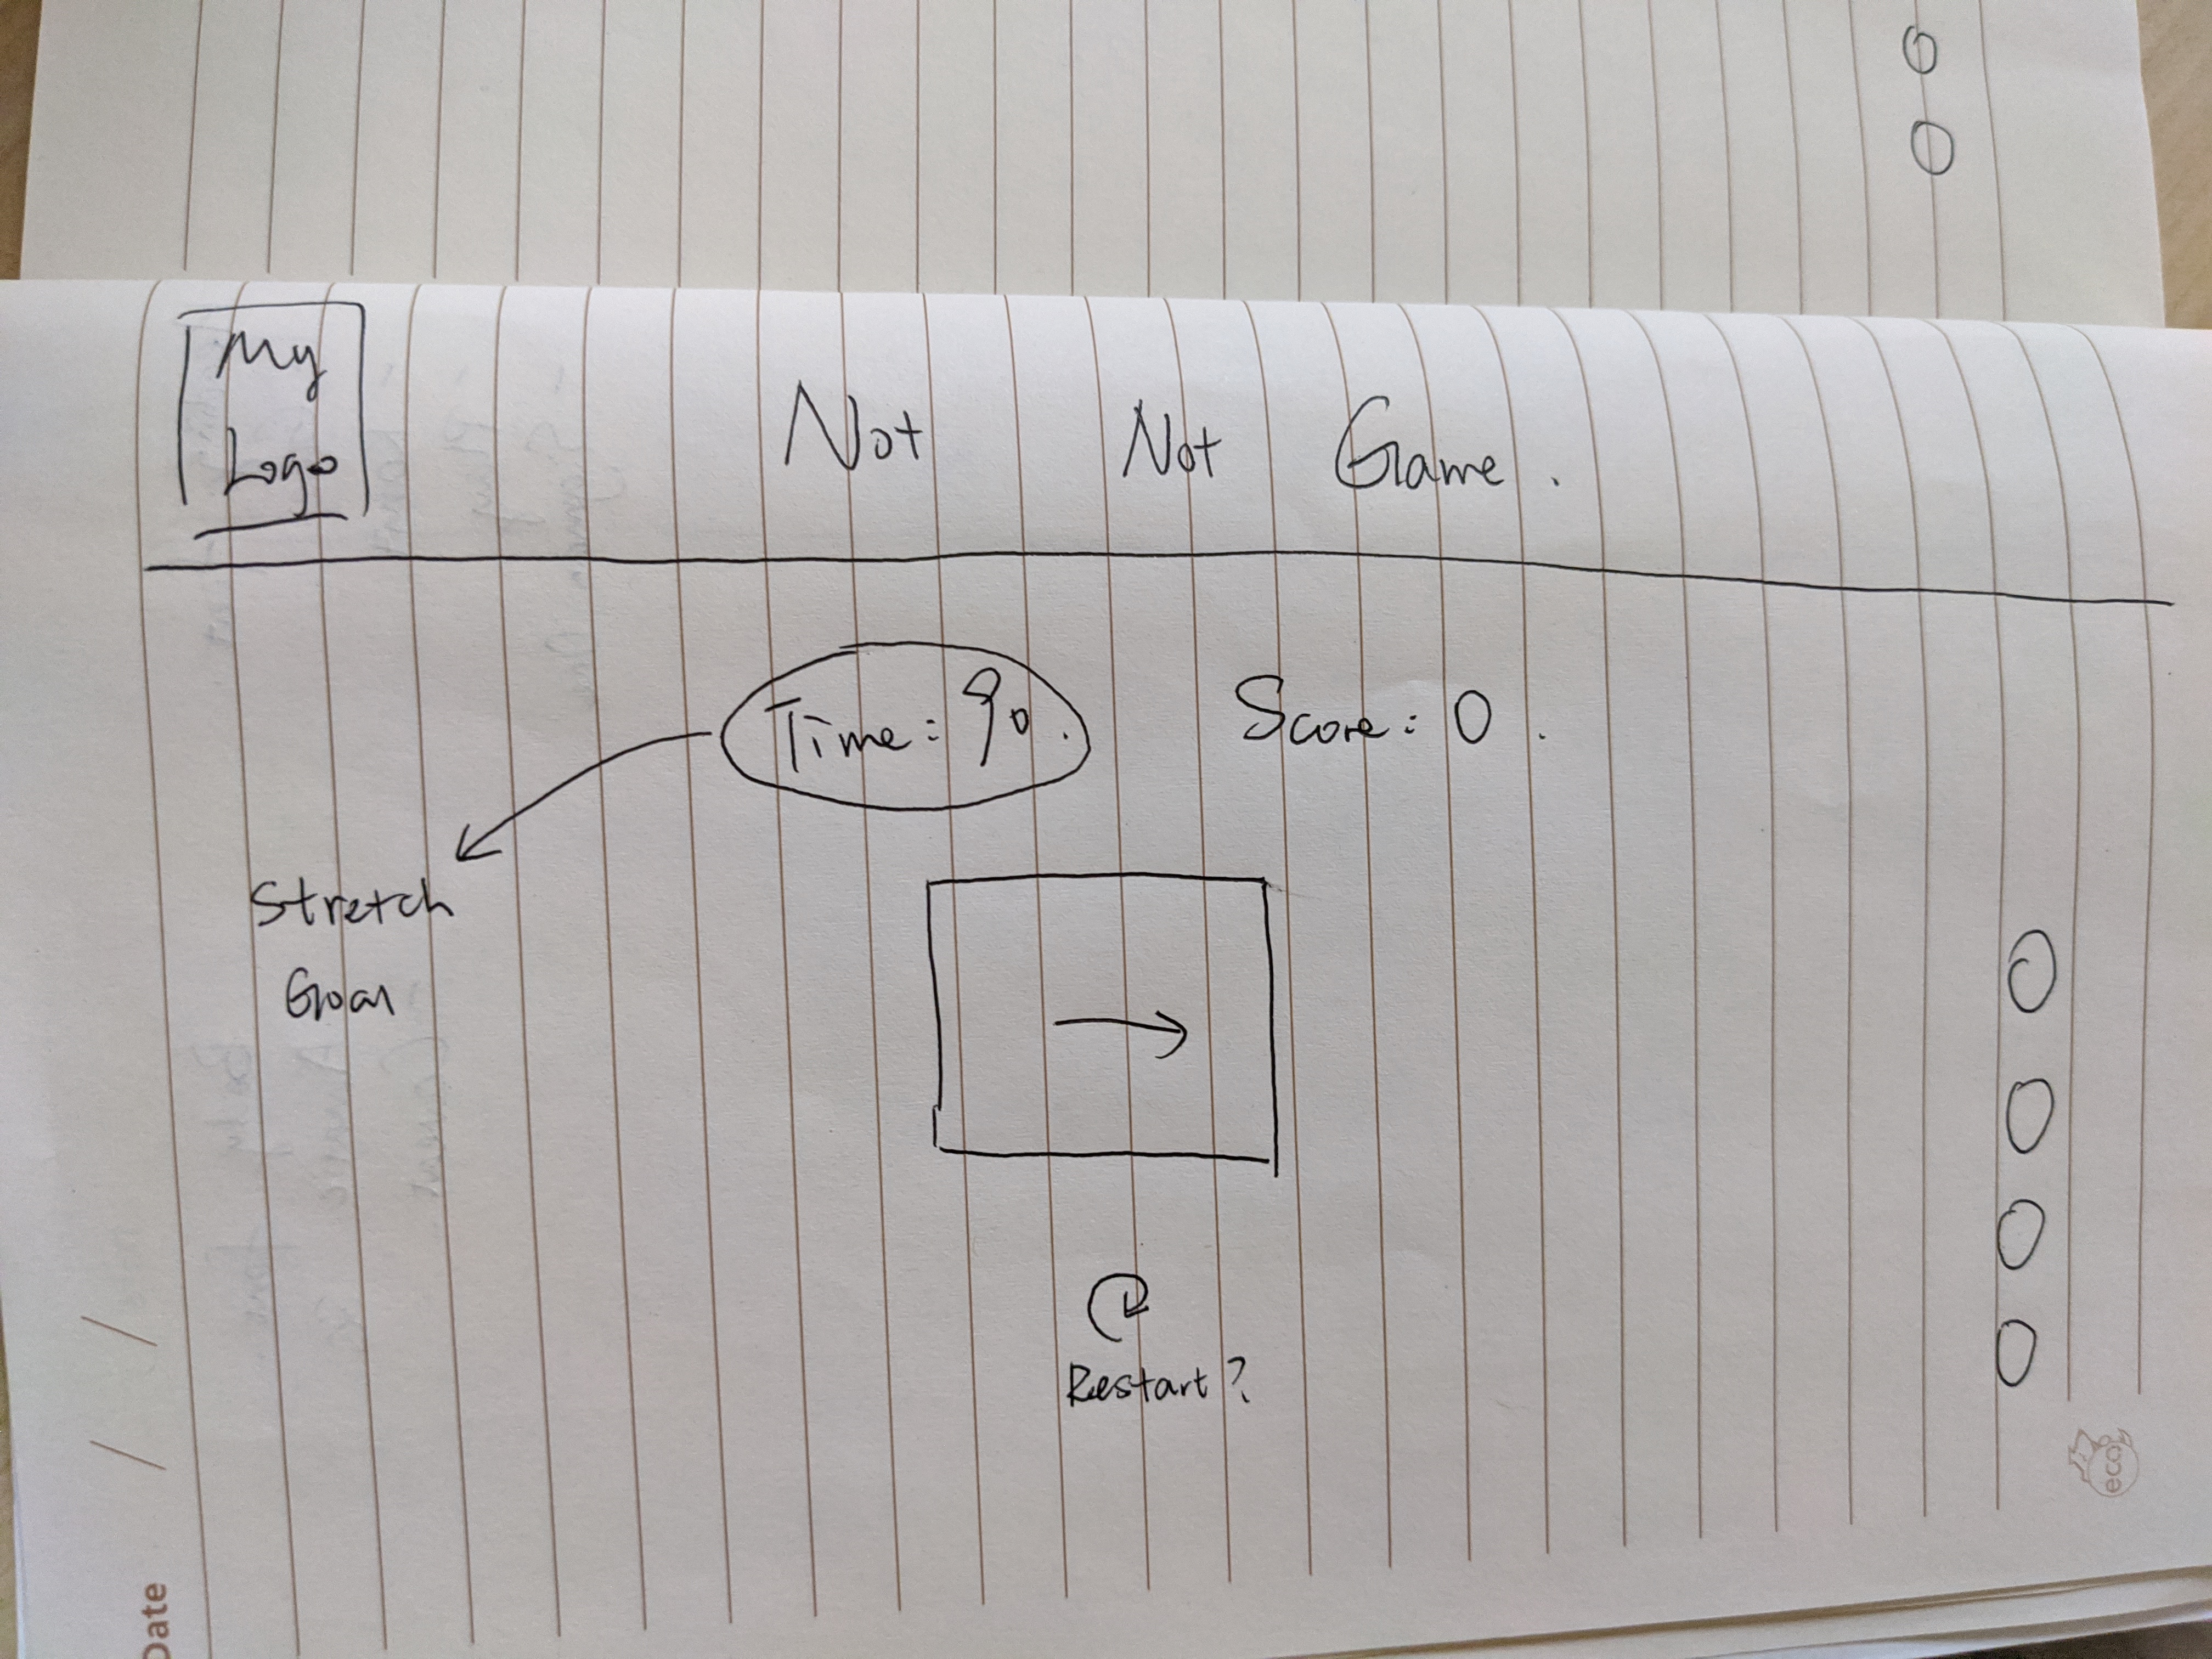 My
Logo
Not Not Game.
Time: 90.
Score: 0.
Stretch
Goal
Restart?
Date / /
eco